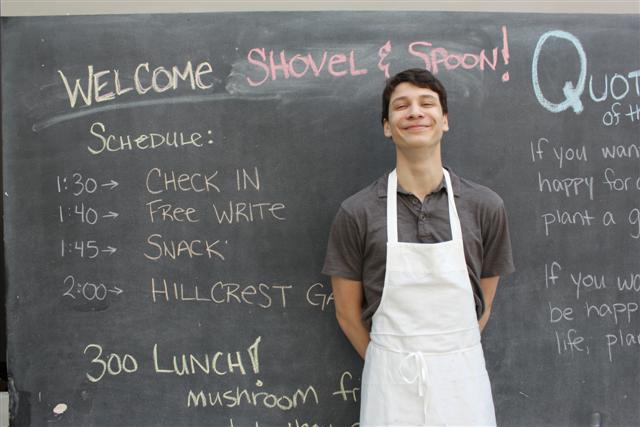 WELCOME SHOVEL & SPOON!
SCHEDULE:
1:30→ CHECK IN
1:40→ FREE WRITE
1:45→ SNACK
2:00→ HILLCREST GA
300 LUNCH!
mushroom fr
QUOT
of th
If you want
happy for a
plant a g
If you wa
be happ
life, plan